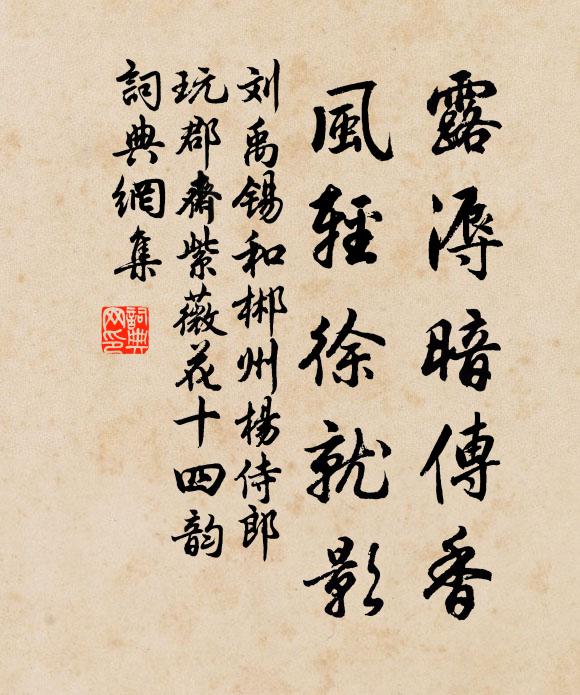 露溽暗傳香
風輕徐就影
刘禹锡和郴州楊侍郎
玩郡齋紫薇花十四韵
詞典網集
詞典
网印